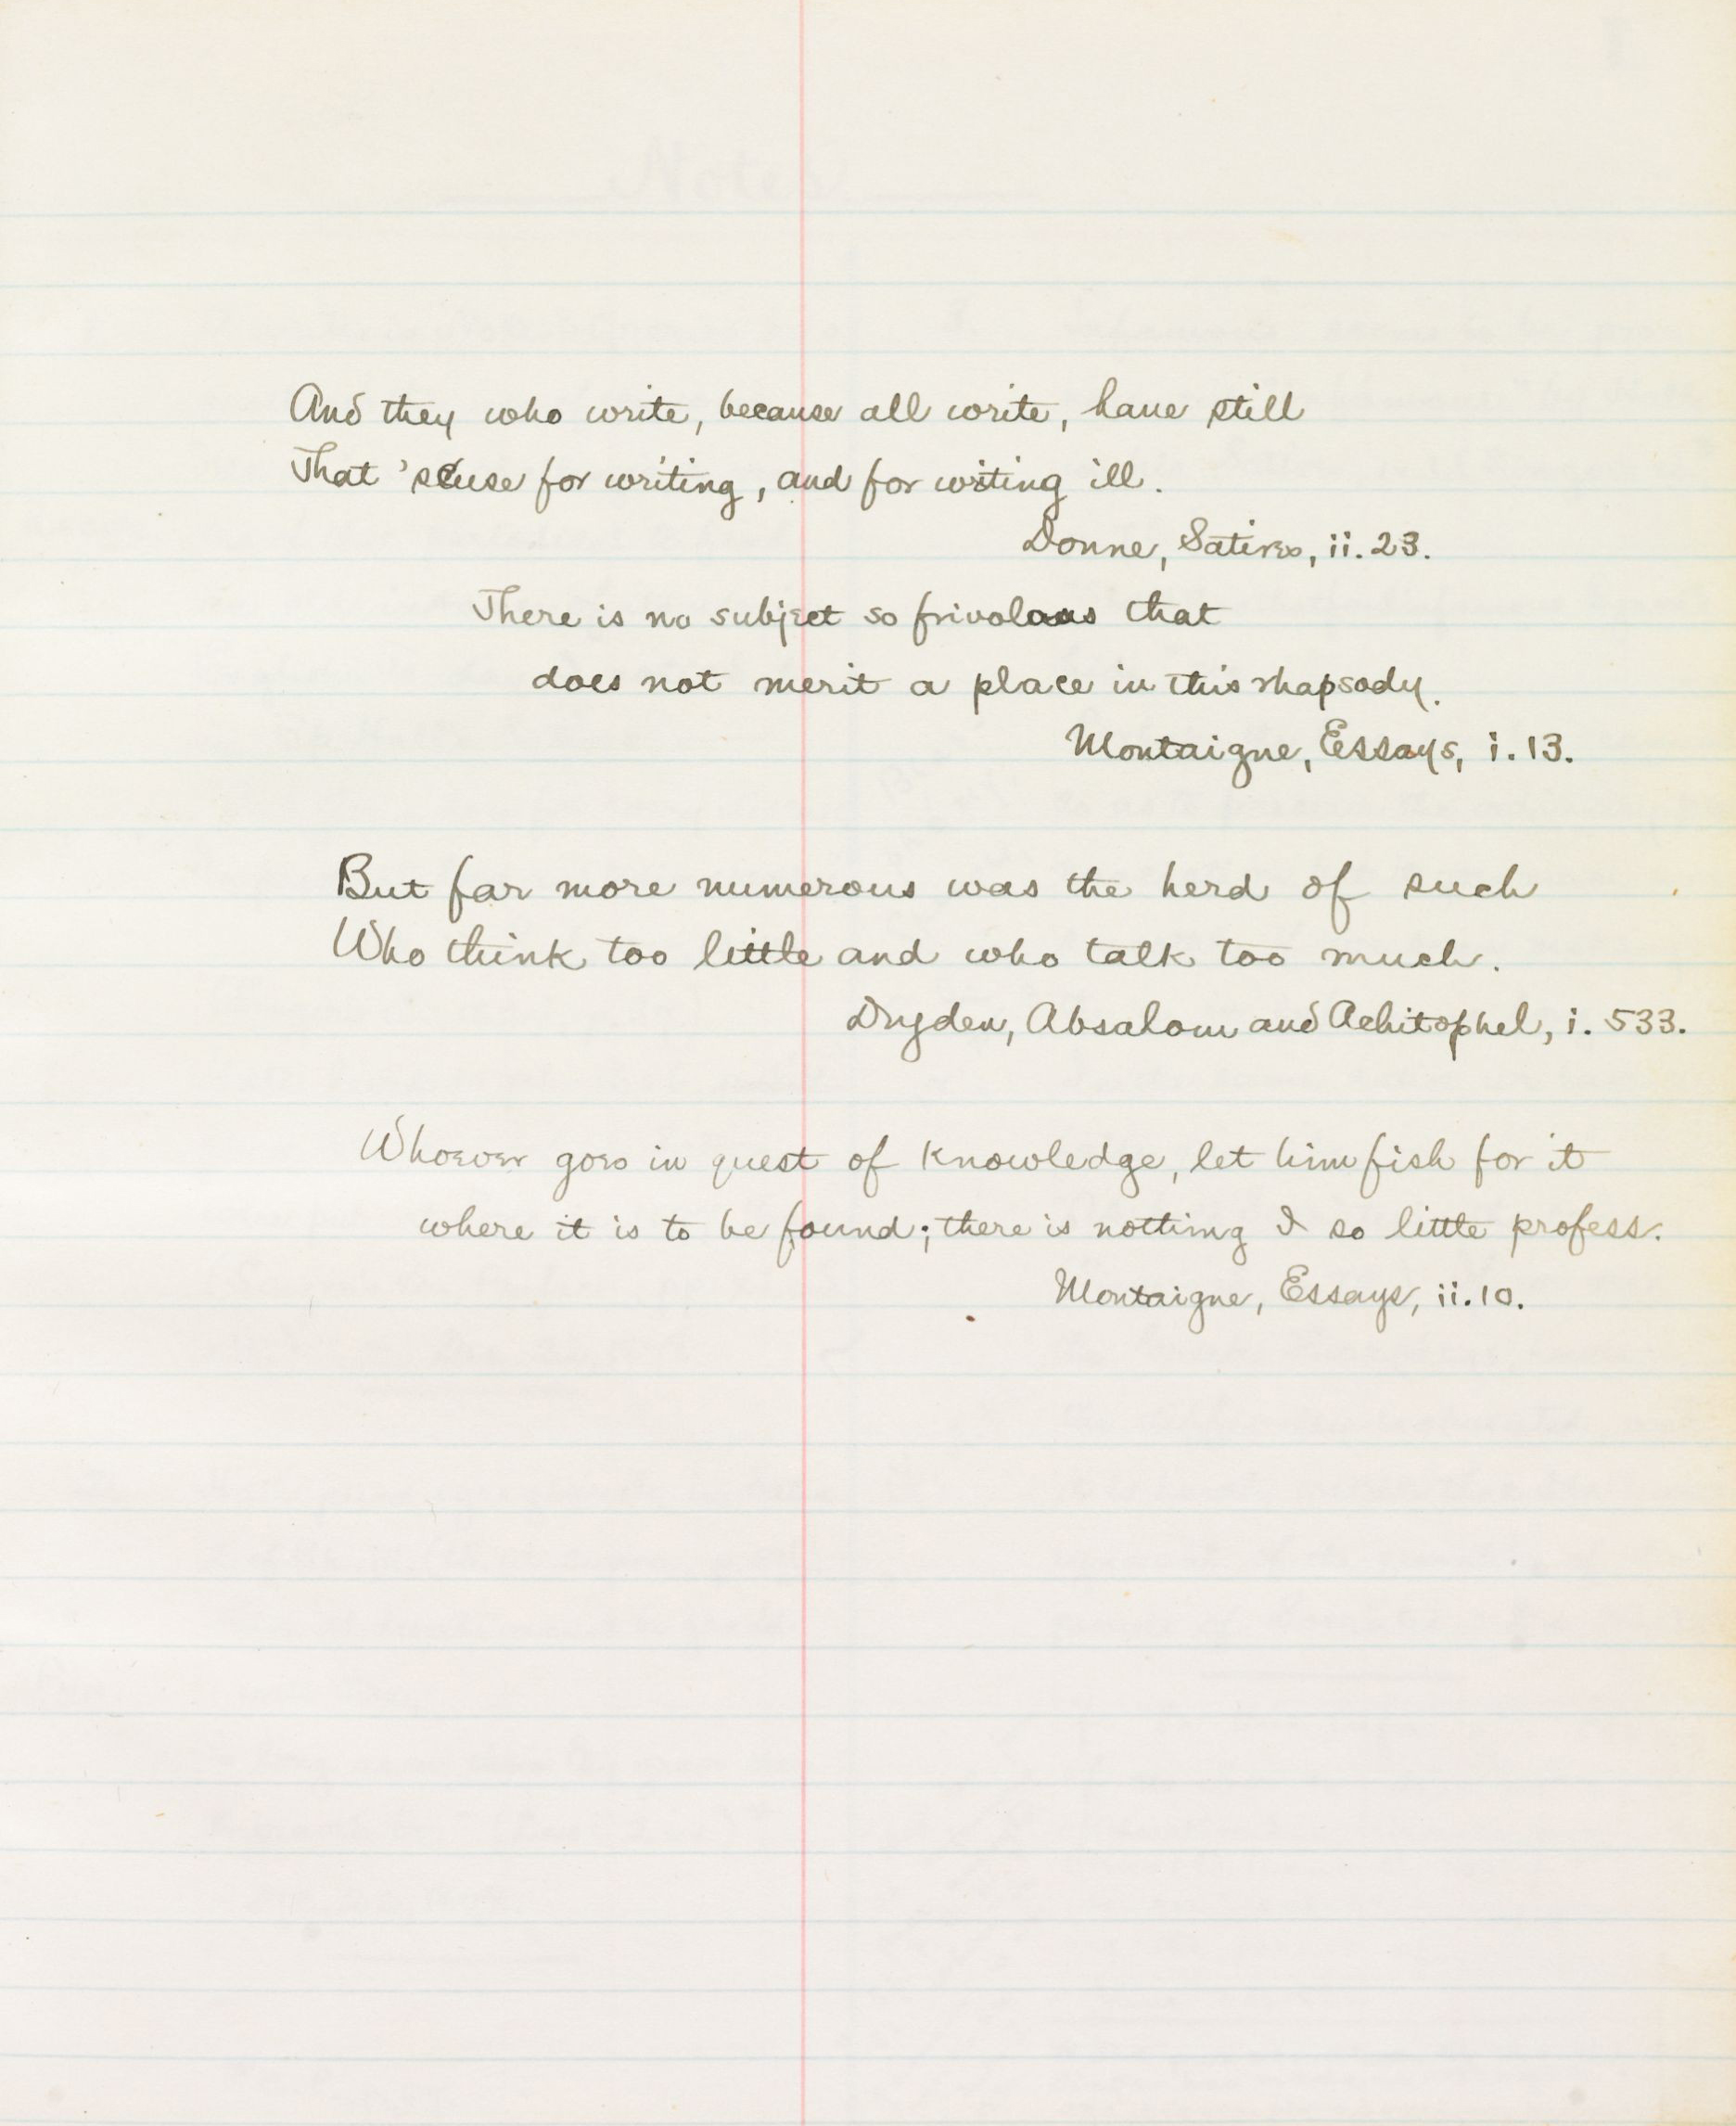 And they who write, because all write, have still
That 'scuse for writing, and for writing ill.
Donne, Satires, ii. 23.
There is no subject so frivolous that
does not merit a place in this rhapsody.
Montaigne, Essays, i. 13.
But far more numerous was the herd of such
Who think too little and who talk too much.
Dryden, Absalom and Achitophel, i. 533.
Whoever goes in quest of knowledge, let him fish for it
where it is to be found; there is nothing I so little profess.
Montaigne, Essays, ii. 10.